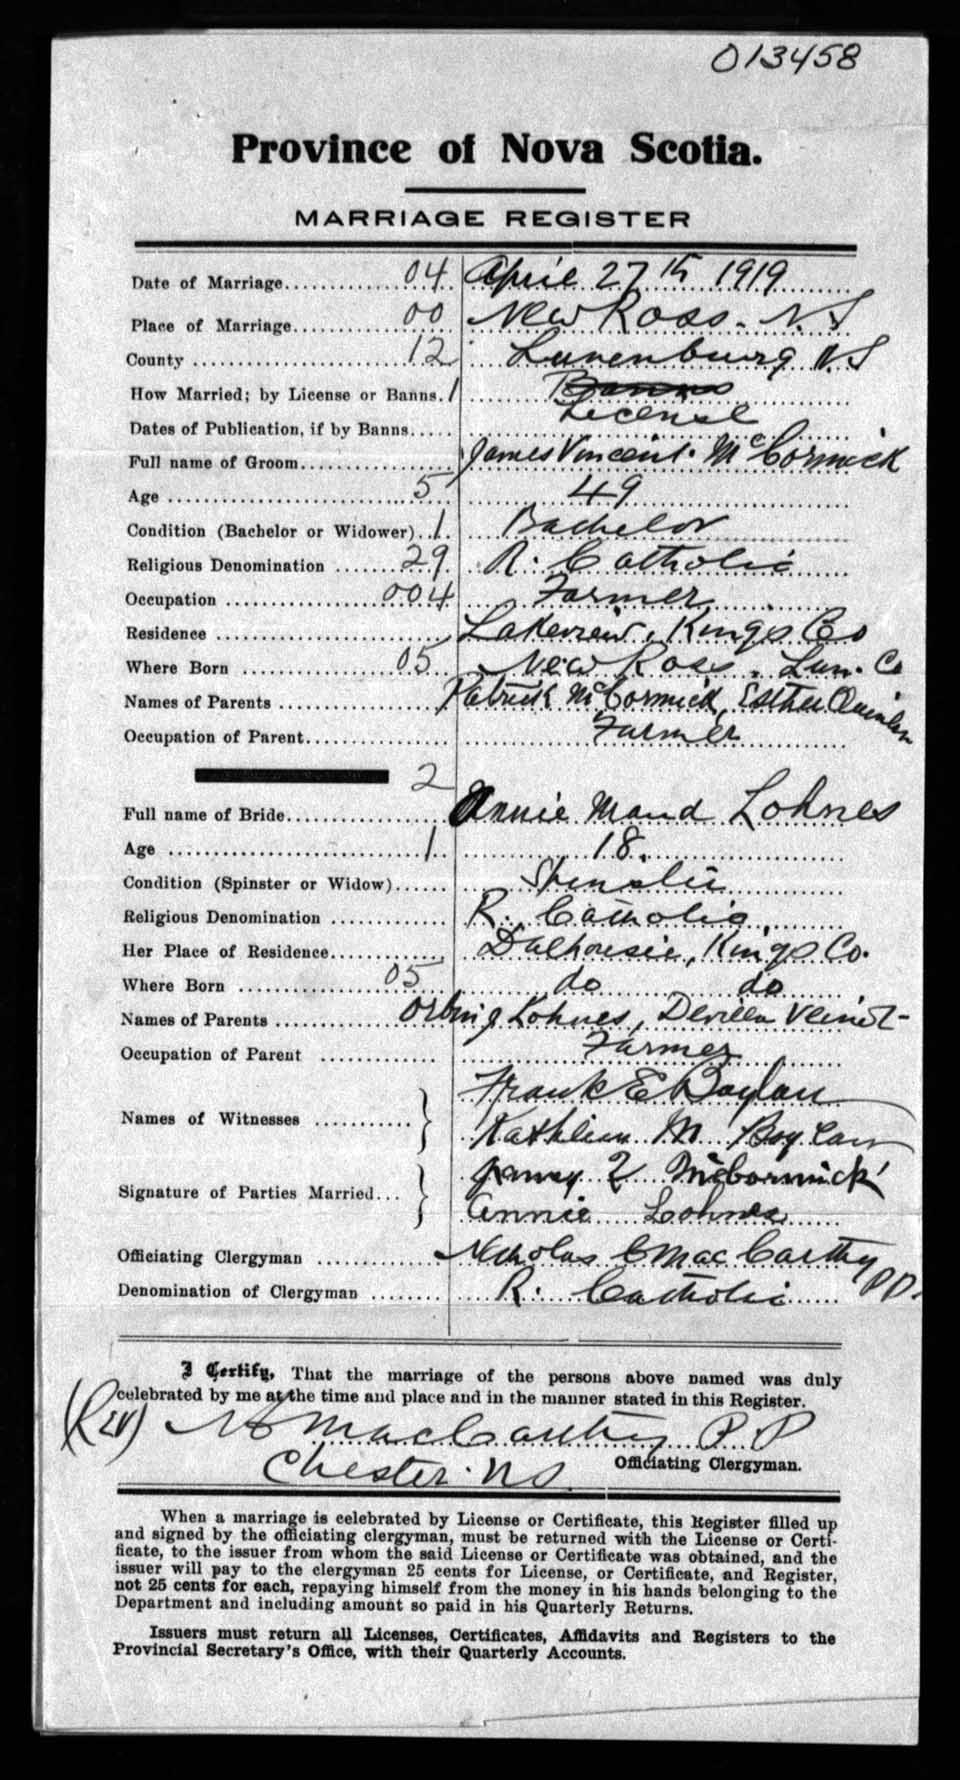 013458
Province of Nova Scotia.
MARRIAGE REGISTER
Date of Marriage 04 April 27th 1919
Place of Marriage 00 New Ross. N.S
County 12 Lunenburg N.S
How Married; by License or Banns. 1 Banns
License
Dates of Publication, if by Banns
Full name of Groom James Vincent McCormick
Age 5 49
Condition (Bachelor or Widower) 1 Bachelor
Religious Denomination 29 R. Catholic
Occupation 004 Farmer
Residence Lakeview, Kings Co
Where Born 05 New Ross. Lun. Co
Names of Parents Patrick McCormick, Esther Quinlan
Occupation of Parent Farmer
2
Full name of Bride Annie Maud Lohnes
Age 1 18.
Condition (Spinster or Widow)
Religious Denomination R. Catholic
Her Place of Residence Dalhousie, Kings Co.
Where Born 05 do do
Names of Parents Lohnes,
Occupation of Parent Farmer
Names of Witnesses Frank E Boylan
Kathleen M Boylan
Signature of Parties Married McCormick
Annie Lohnes
Officiating Clergyman Nicholas C MacCarthy PP.
Denomination of Clergyman R. Catholic
I Certify, That the marriage of the persons above named was duly
celebrated by me at the time and place and in the manner stated in this Register.
(Rev) MacCarthy P P
Chester. NS. Officiating Clergyman.
When a marriage is celebrated by License or Certificate, this Register filled up
and signed by the officiating clergyman, must be returned with the License or Certi-
ficate, to the issuer from whom the said License or Certificate was obtained, and the
issuer will pay to the clergyman 25 cents for License, or Certificate, and Register,
not 25 cents for each, repaying himself from the money in his hands belonging to the
Department and including amount so paid in his Quarterly Returns.
Issuers must return all Licenses, Certificates, Affidavits and Registers to the
Provincial Secretary's Office, with their Quarterly Accounts.